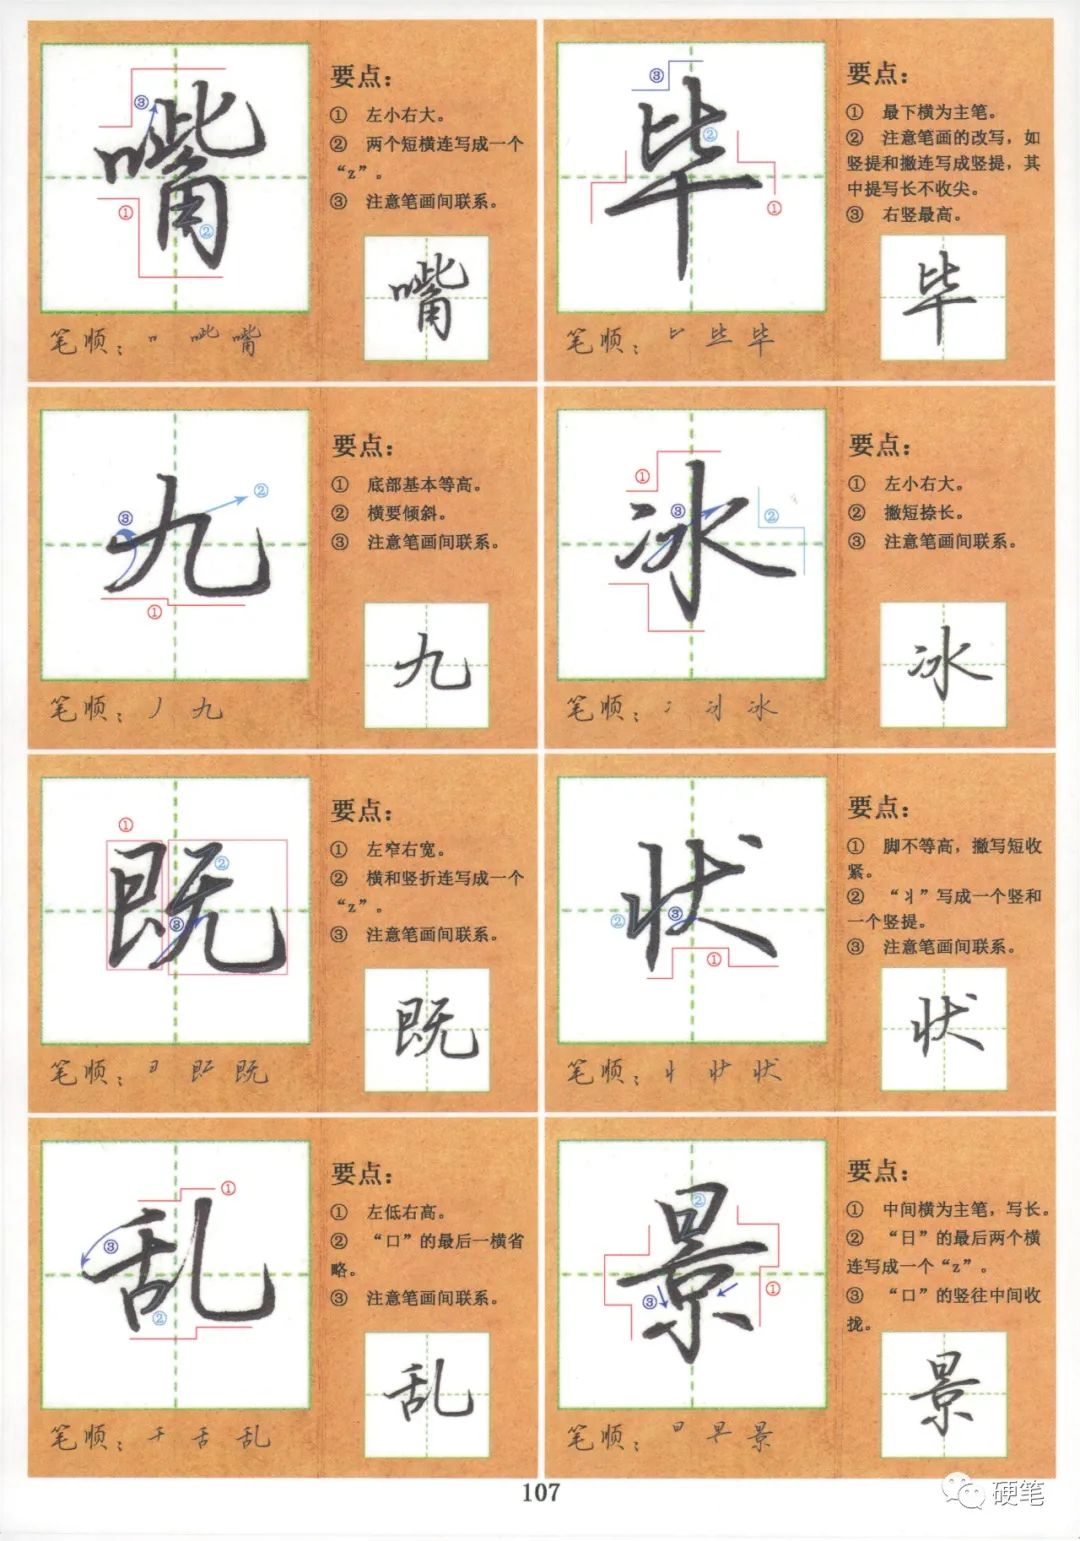 嘴
③
①
②
要点：
① 左小右大。
② 两个短横连写成一个
“z”。
③ 注意笔画间联系。
嘴
笔顺： 嘴
毕
③
②
①
要点：
① 最下横为主笔。
② 注意笔画的改写，如
竖提和撇连写成竖提，其
中提写长不收尖。
③ 右竖最高。
毕
笔顺： 毕
九
②
③
①
要点：
① 底部基本等高。
② 横要倾斜。
③ 注意笔画间联系。
九
笔顺：丿 九
冰
①
③
②
要点：
① 左小右大。
② 撇短捺长。
③ 注意笔画间联系。
冰
笔顺：冫 冰
既
①
②
③
要点：
① 左窄右宽。
② 横和竖折连写成一个
“z”。
③ 注意笔画间联系。
既
笔顺： 既
状
②
③
①
要点：
① 脚不等高，撇写短收
紧。
② “丬”写成一个竖和
一个竖提。
③ 注意笔画间联系。
状
笔顺： 状
乱
①
③
②
要点：
① 左低右高。
② “口”的最后一横省
略。
③ 注意笔画间联系。
乱
笔顺： 舌 乱
景
②
③
①
要点：
① 中间横为主笔，写长。
② “日”的最后两个横
连写成一个“z”。
③ “口”的竖往中间收
拢。
景
笔顺： 景
107
硬笔